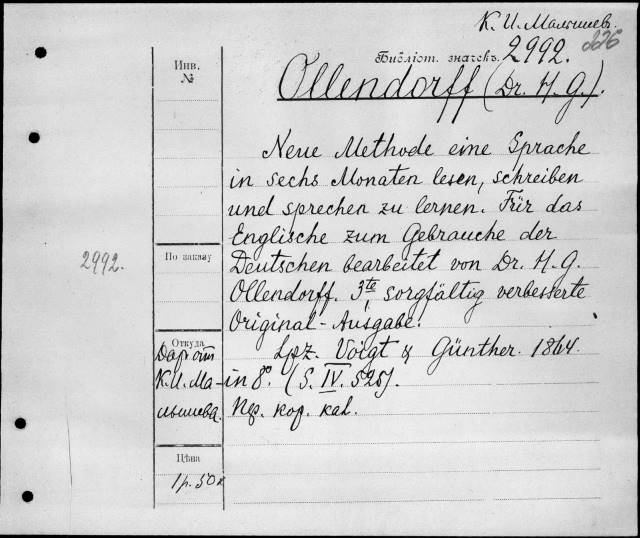 К. И. Малышевъ.
226
Библіот. значекъ. 2992.
Инв.
№
Ollendorff (Dr. H. G.).
Neue Methode eine Sprache
in sechs Monaten lesen, schreiben
und sprechen zu lernen. Für das
Englische zum Gebrauche der
2992.
По заказу
Deutschen bearbeitet von Dr. H. G.
Ollendorff. 3te, sorgfältig verbesserte
Original-Ausgabe.
Откуда
Даръ отъ
К. И. Ма-
лышева.
Lpz. Voigt & Günther. 1864.
in 8°. (S. IV. 525).
кор.
Цѣна
1 р. 50 к